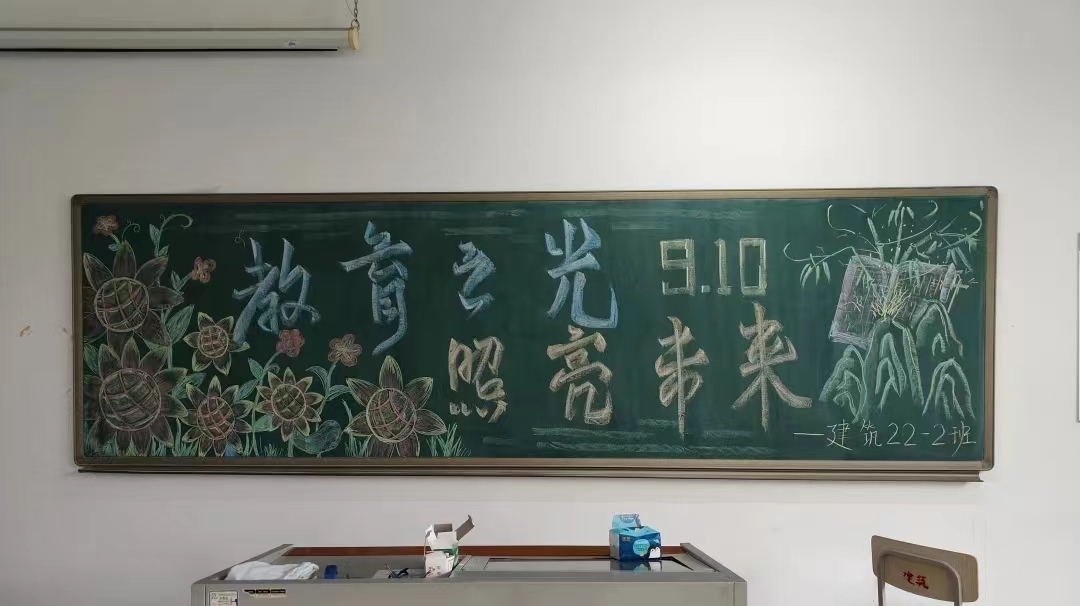 教育之光 9.10
照亮未来
—建筑22-2班
建筑